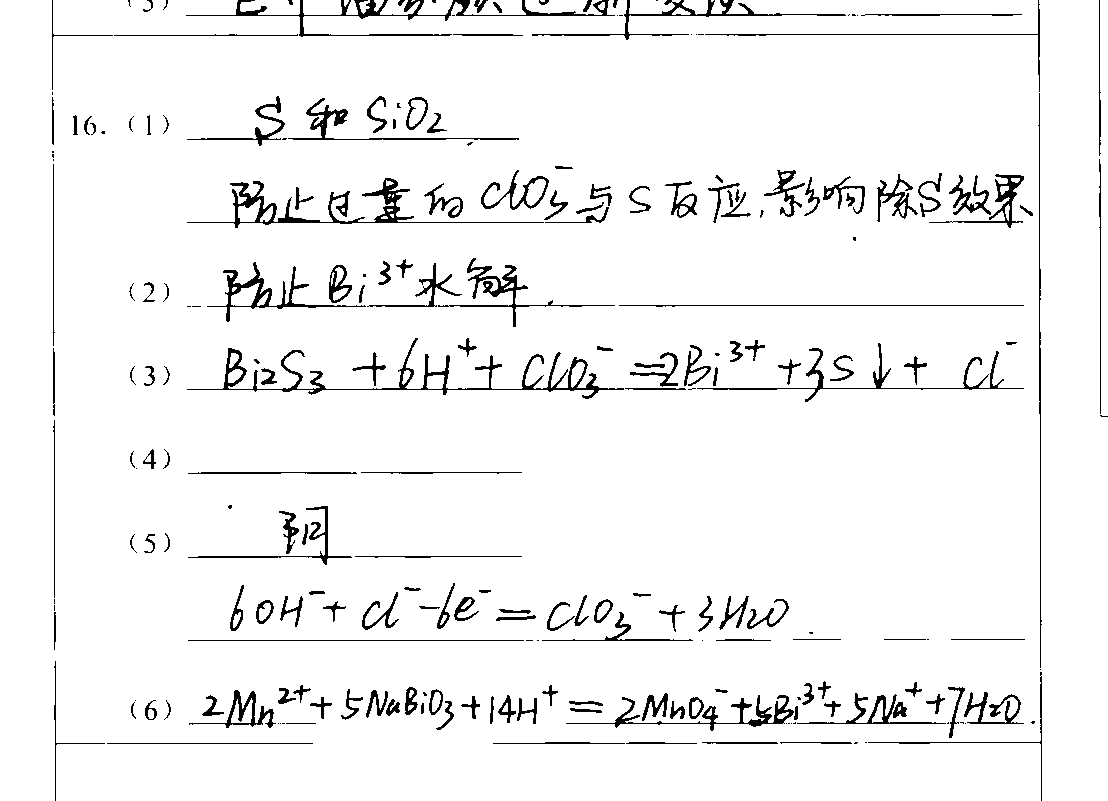 (3)
16. (1) S 和 SiO2
防止过量的 ClO3⁻与 S 反应,影响除S效果
(2) 防止 Bi³⁺水解.
(3) Bi2S3 + 6H⁺ + ClO3⁻ =2Bi³⁺ +3S↓+ Cl⁻
(4)
(5) 阴
6OH⁻+ Cl⁻-6e⁻ = ClO3⁻ + 3H2O
(6) 2Mn²⁺+5NaBiO3+14H⁺ = 2MnO4⁻+5Bi³⁺+5Na⁺+7H2O.